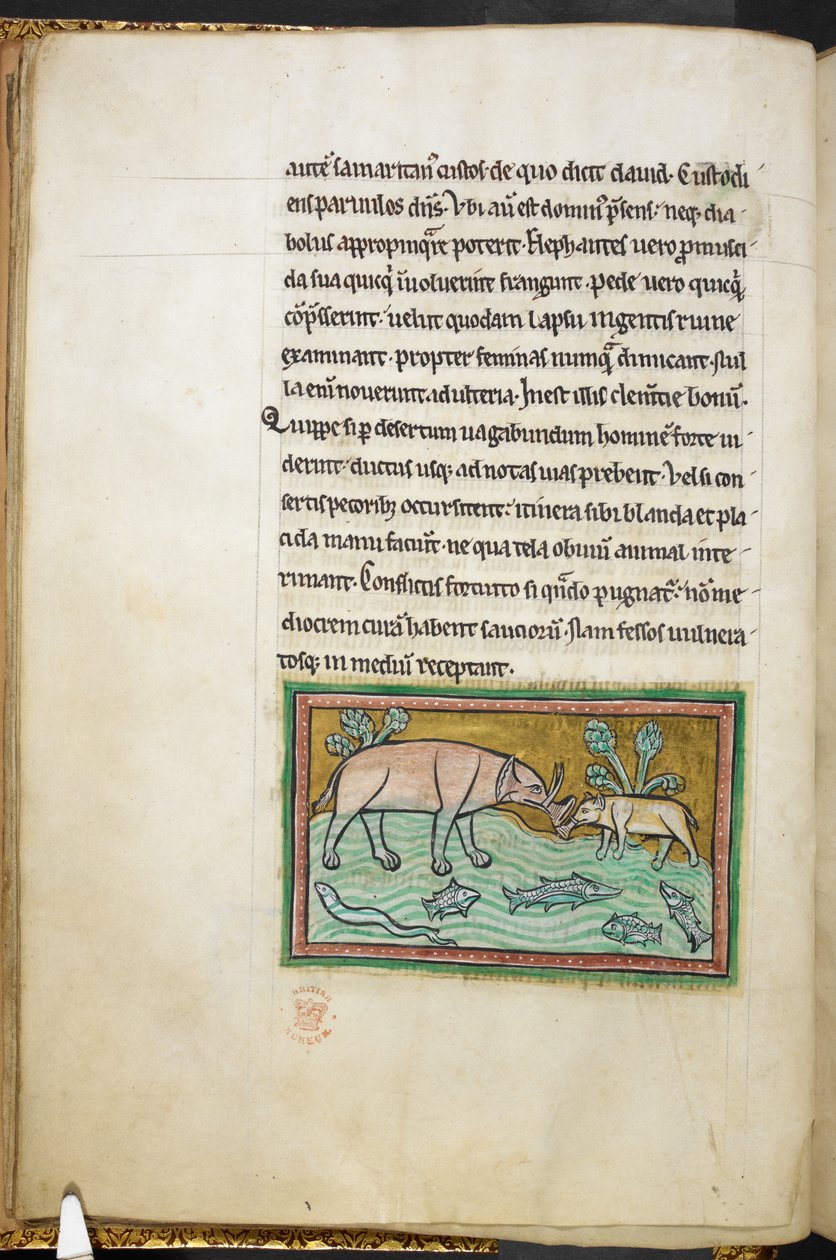 autē samaritan᾿ custos· de quo dicit david. Custodi
ens parvulos dn̄s. Vbi aū est domin᾿ p̄sens: neq; dia
bolus appropinq̄re poterit. Elephantes uero p̱musci
da sua quicq̄ īuoluerint frangunt. pede uero quicq̄
cōp̄sserint: uelut quodam lapsu ingentis ruine
examinant. propter feminas numq̄ dimicant. Nul
la eni᷑ noverunt adulteria. Inest illis clem̄tie bonū.
Quippe si p̱ desertum uagabundum hominē forte ui
derint: ductus usq; ad notas uias prebent. Vel si con
sertis pecorib; occursitent: itinera sibi blanda et pla
cida manu faciūt. ne qua tela obuiū animal inte
rimant. Conflictu fortuito si qn̄do pugnat᷑: nō me
diocrem curā habent sauciorū. Nam fessos uulnera
tosq; in mediū receptant.
BRITISH
MUSEUM